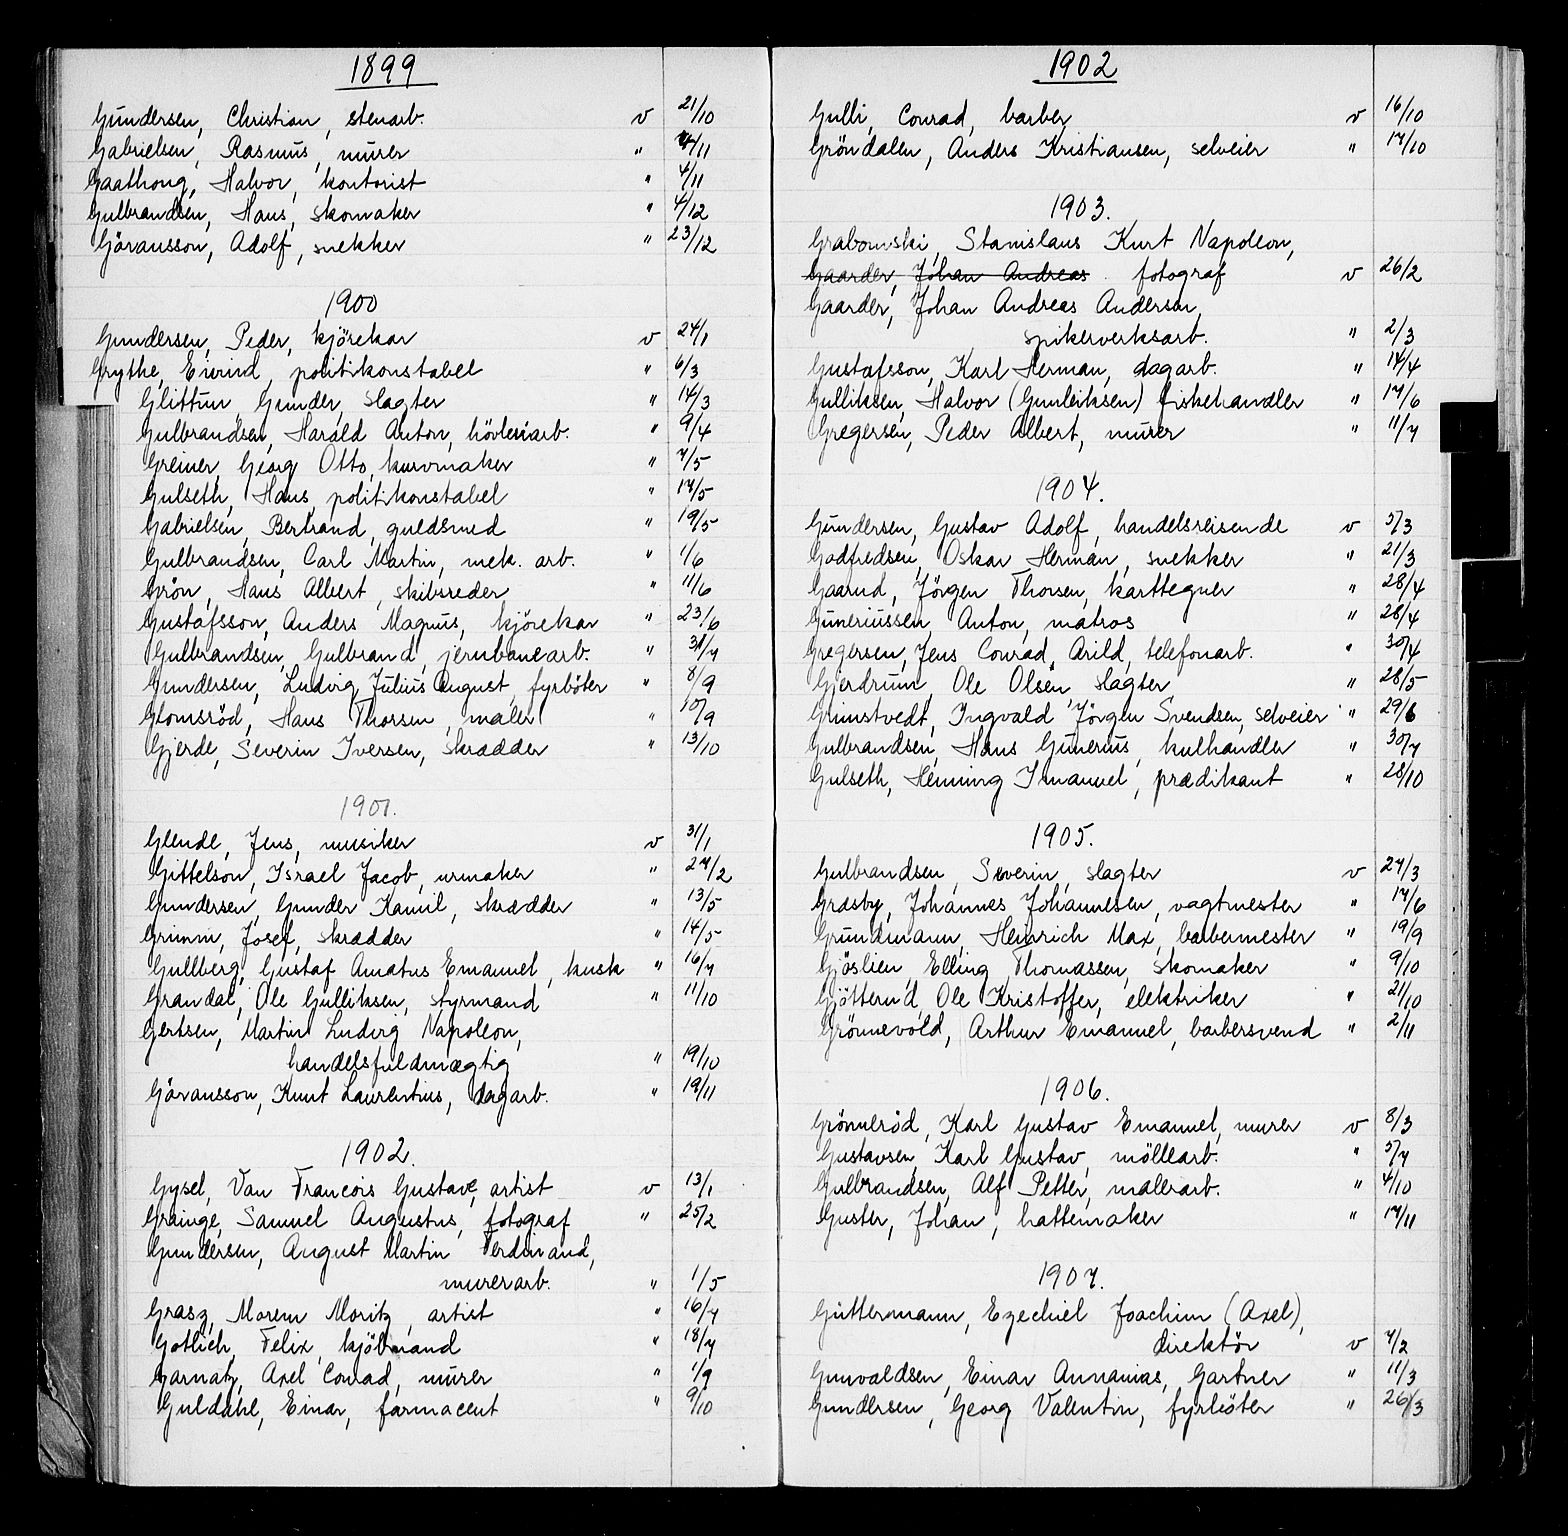 1899
Gundersen, Christian, stenarb. v 21/10
Gabrielsen, Rasmus, murer " 4/11
Gaathong, Halvor, kontorist " 4/11
Gulbrandsen, Hans, skomaker " 4/12
Göransson, Adolf, snekker " 23/12
1900
Gundersen, Peder, kjörekar v 24/1
Grythe, Eivind, politikonstabel " 6/3
Glittun, Gunder, slagter " 14/3
Gulbrandsen, Harald Anton, hövleriarb. " 9/4
Greiner, Georg Otto, kurvmaker " 7/5
Gulseth, Hans, politikonstabel " 17/5
Gabrielsen, Bertrand, guldsmed " 19/5
Gulbrandsen, Carl Martin, mek. arb. " 1/6
Grön, Hans Albert, skibsreder " 11/6
Gustafsson, Anders Magnus, kjörekar " 23/6
Gulbrandsen, Gulbrand, jernbanearb. " 31/7
Gundersen, Ludvig Julius August, fyrböter " 8/9
Glomsröd, Hans Thorsen, maler " 10/9
Gjerde, Severin Iversen, skrædder " 13/10
1901.
Glende, Jens, musiker v 31/1
Gittelson, Israel Jacob, urmaker " 27/2
Gundersen, Gunder Kamil, skrædder " 13/5
Grimm, Josef, skrædder " 14/5
Gullberg, Gustaf Amatus Emanuel, kusk " 16/7
Grandal, Ole Gulliksen, styrmand " 11/10
Gertsen, Martin Ludvig Napoleon,
handelsfuldmægtig " 19/10
Göransson, Knut Laurentius, dagarb. " 19/11
1902.
Gysel, Van Francois Gustave, artist v 13/1
Grainge, Samuel Augustus, fotograf " 25/2
Gundersen, August Martin Ferdinand,
murerarb. " 1/5
Grasz, Morem Moritz, artist " 16/7
Gotlich, Felix, kjöbmand " 18/7
Garnatz, Axel Conrad, murer " 1/9
Guldahl, Einar, farmaceut " 9/10
1902
Gulli, Conrad, barber v 16/10
Gröndalen, Anders Kristiansen, selveier " 17/10
1903.
Grabowski, Stanislaus Kurt Napoleon,
Gaarder, Johan Andreas fotograf v 26/2
Gaarder, Johan Andreas Andersen,
spikerverksarb. " 2/3
Gustafsson, Karl Herman, dagarb. " 14/4
Gulliksen, Halvor (Gunleiksen) fiskehandler " 17/6
Gregersen, Peder Albert, murer " 11/7
1904.
Gundersen, Gustav Adolf, handelsreisende v 5/3
Godfredsen, Oskar Herman, snekker " 21/3
Gaarud, Jörgen Thorsen, karttegner " 28/4
Guneriussen, Anton, matros " 28/4
Gregersen, Jens Conrad Arild, telefonarb. " 30/4
Gjerdrum, Ole Olsen, slagter " 28/5
Grimstvedt, Ingvald Jörgen Svendsen, selveier " 29/6
Gulbrandsen, Hans Gunerius, kulhandler " 30/7
Gulseth, Henning Imanuel, prædikant " 28/10
1905.
Gulbrandsen, Severin, slagter v 27/3
Græsby, Johannes Johannesen, vagtmester " 17/6
Grundmann, Heinrich Max, barbermester " 19/9
Gjöslien, Elling Thomassen, skomaker " 9/10
Gjötterud, Ole Kristoffer, elektriker " 21/10
Grönnevold, Arthur Emanuel, barbersvend " 2/11
1906.
Grönneröd, Karl Gustav Emanuel, murer v 8/3
Gustavsen, Karl Gustav, möllearb. " 5/7
Gulbrandsen, Alf Petter, malerarb. " 4/10
Guster, Johan, hattemaker " 17/11
1907.
Guttermann, Ezechiel Joachim (Axel),
direktör v 7/2
Gunvaldsen, Einar Annanias, Gartner " 11/3
Gundersen, Georg Valentin, fyrböter " 26/3